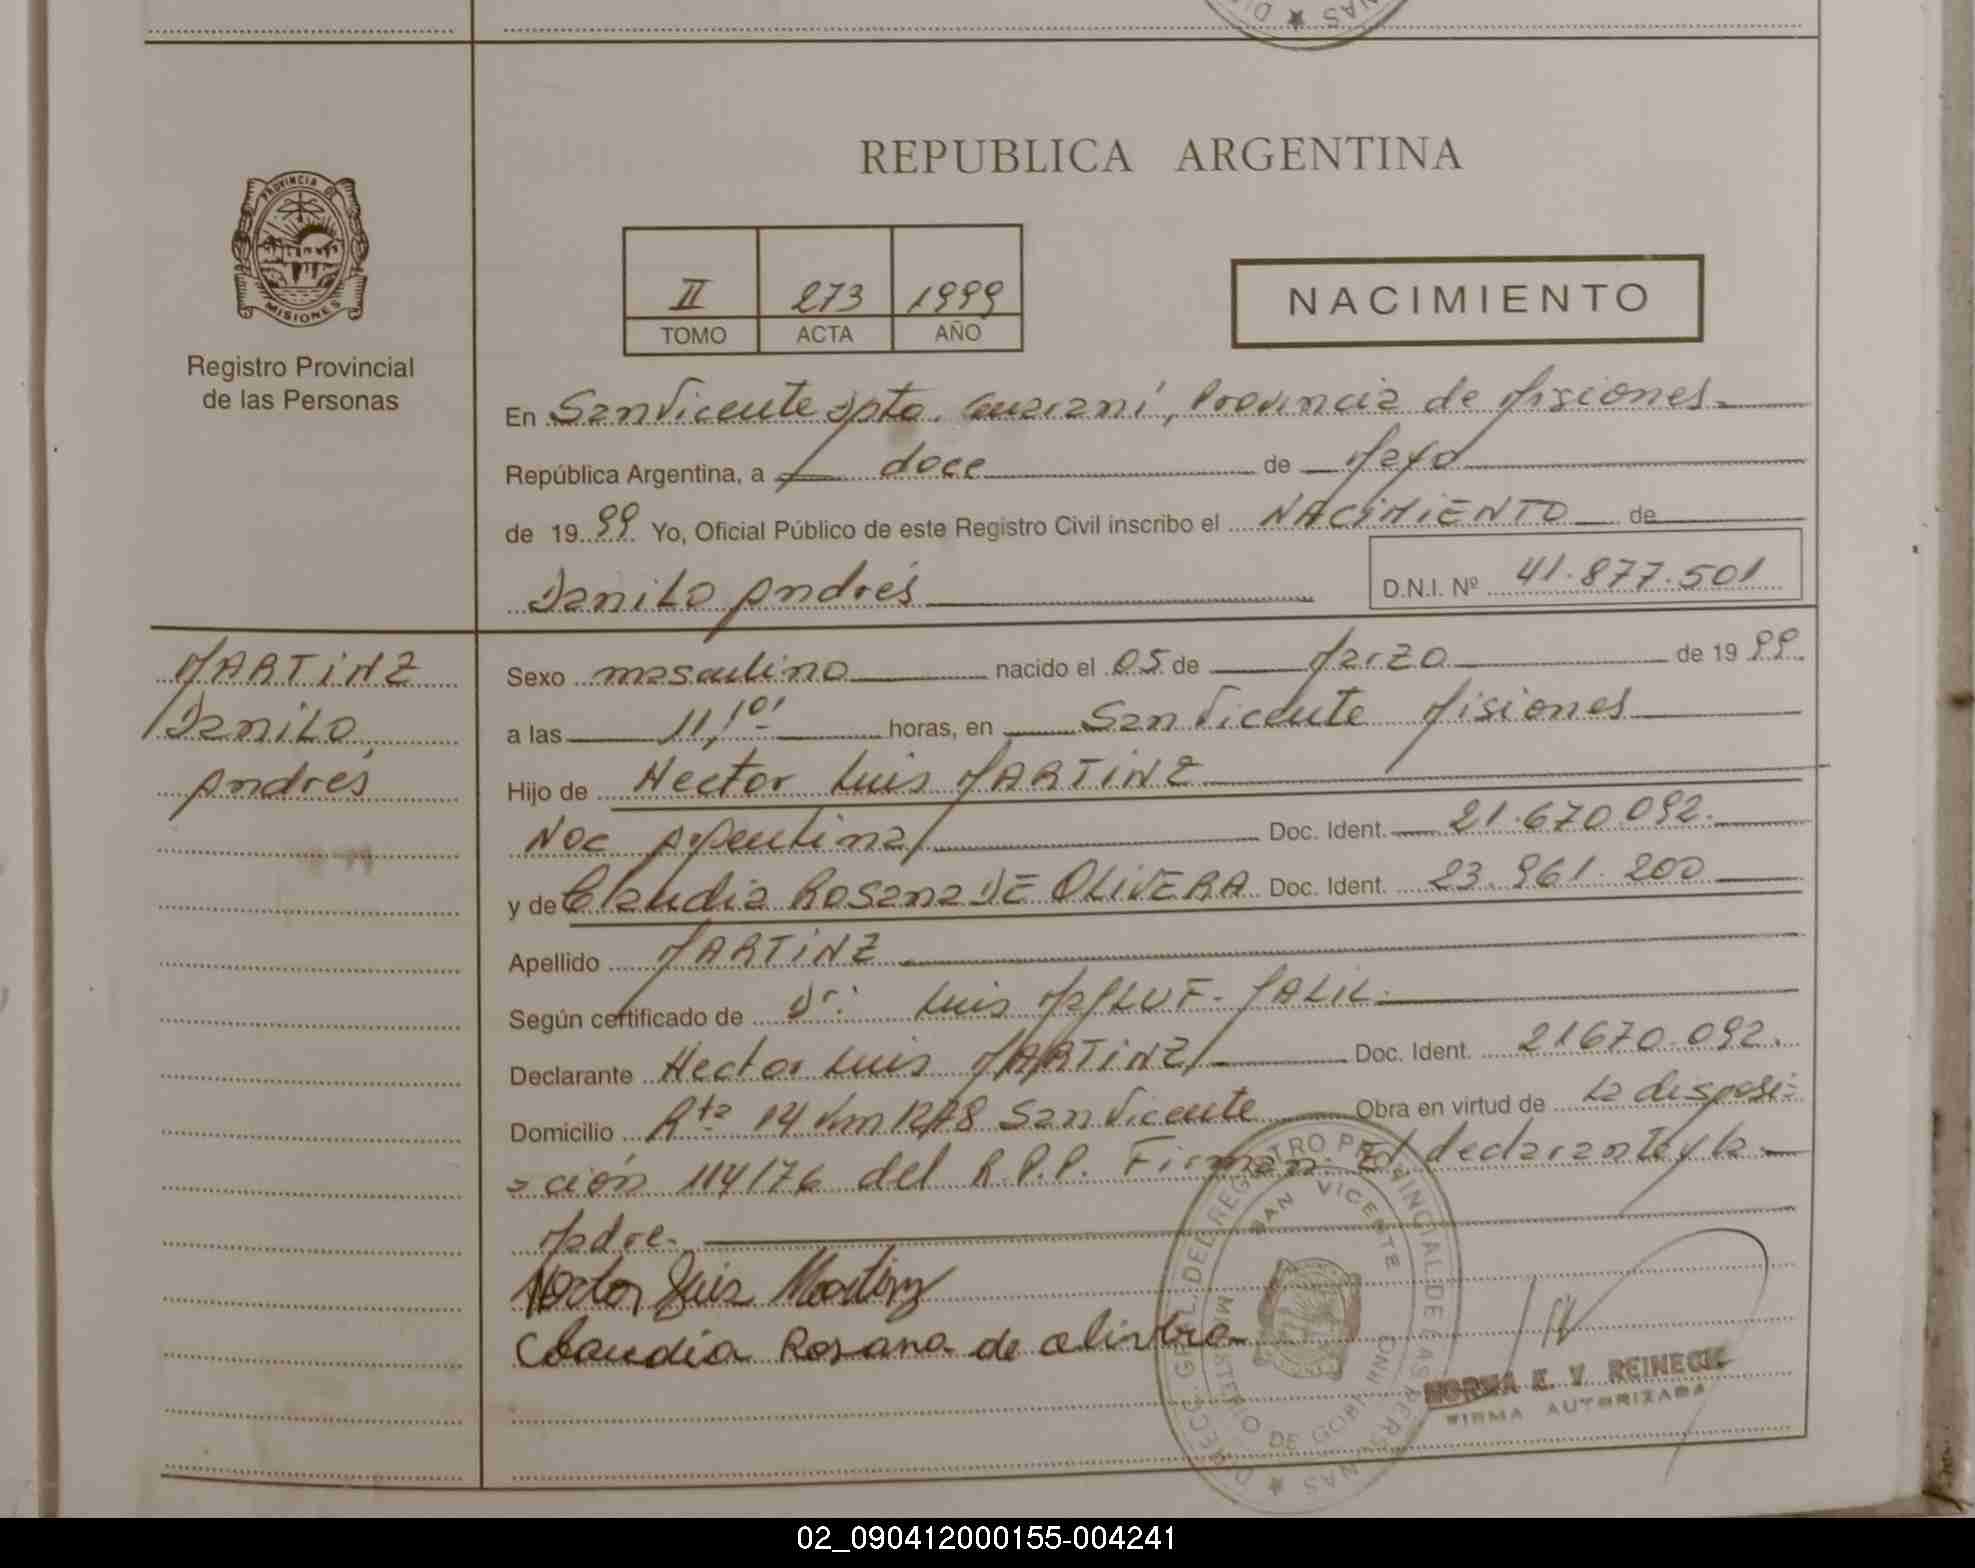 REPUBLICA ARGENTINA
PROVINCIA DE
MISIONES
Registro Provincial
de las Personas
II 273 1999
TOMO ACTA AÑO
NACIMIENTO
En San Vicente Dpto. Guaraní, Provincia de Misiones
República Argentina, a doce de Mayo
de 1999 Yo, Oficial Público de este Registro Civil inscribo el NACIMIENTO de
Danilo Andrés D.N.I. Nº 41.877.501
MARTINZ
Danilo
Andrés
Sexo masculino nacido el 05 de Marzo de 1999
a las 11,10 horas, en San Vicente Misiones
Hijo de Hector Luis MARTINZ
Nac Argentina Doc. Ident. 21.670.092.
y de Claudia Rosana DE OLIVERA Doc. Ident. 23.961.200
Apellido MARTINZ
Según certificado de Dr. Luis JALIL
Declarante Hector Luis MARTINZ Doc. Ident. 21670.092.
Domicilio Rta 14 San Vicente Obra en virtud de la disposi-
ción 114/76 del R.P.P. Firman El declarante y la
Madre.
Hector Luis Martinz
Claudia Rosana de
DIRECC. GRAL. DEL REGISTRO PROVINCIAL DE LAS PERSONAS
SAN VICENTE
MINISTERIO DE GOBIERNO
NORMA E. V. REINECK
FIRMA AUTORIZADA
02_090412000155-004241